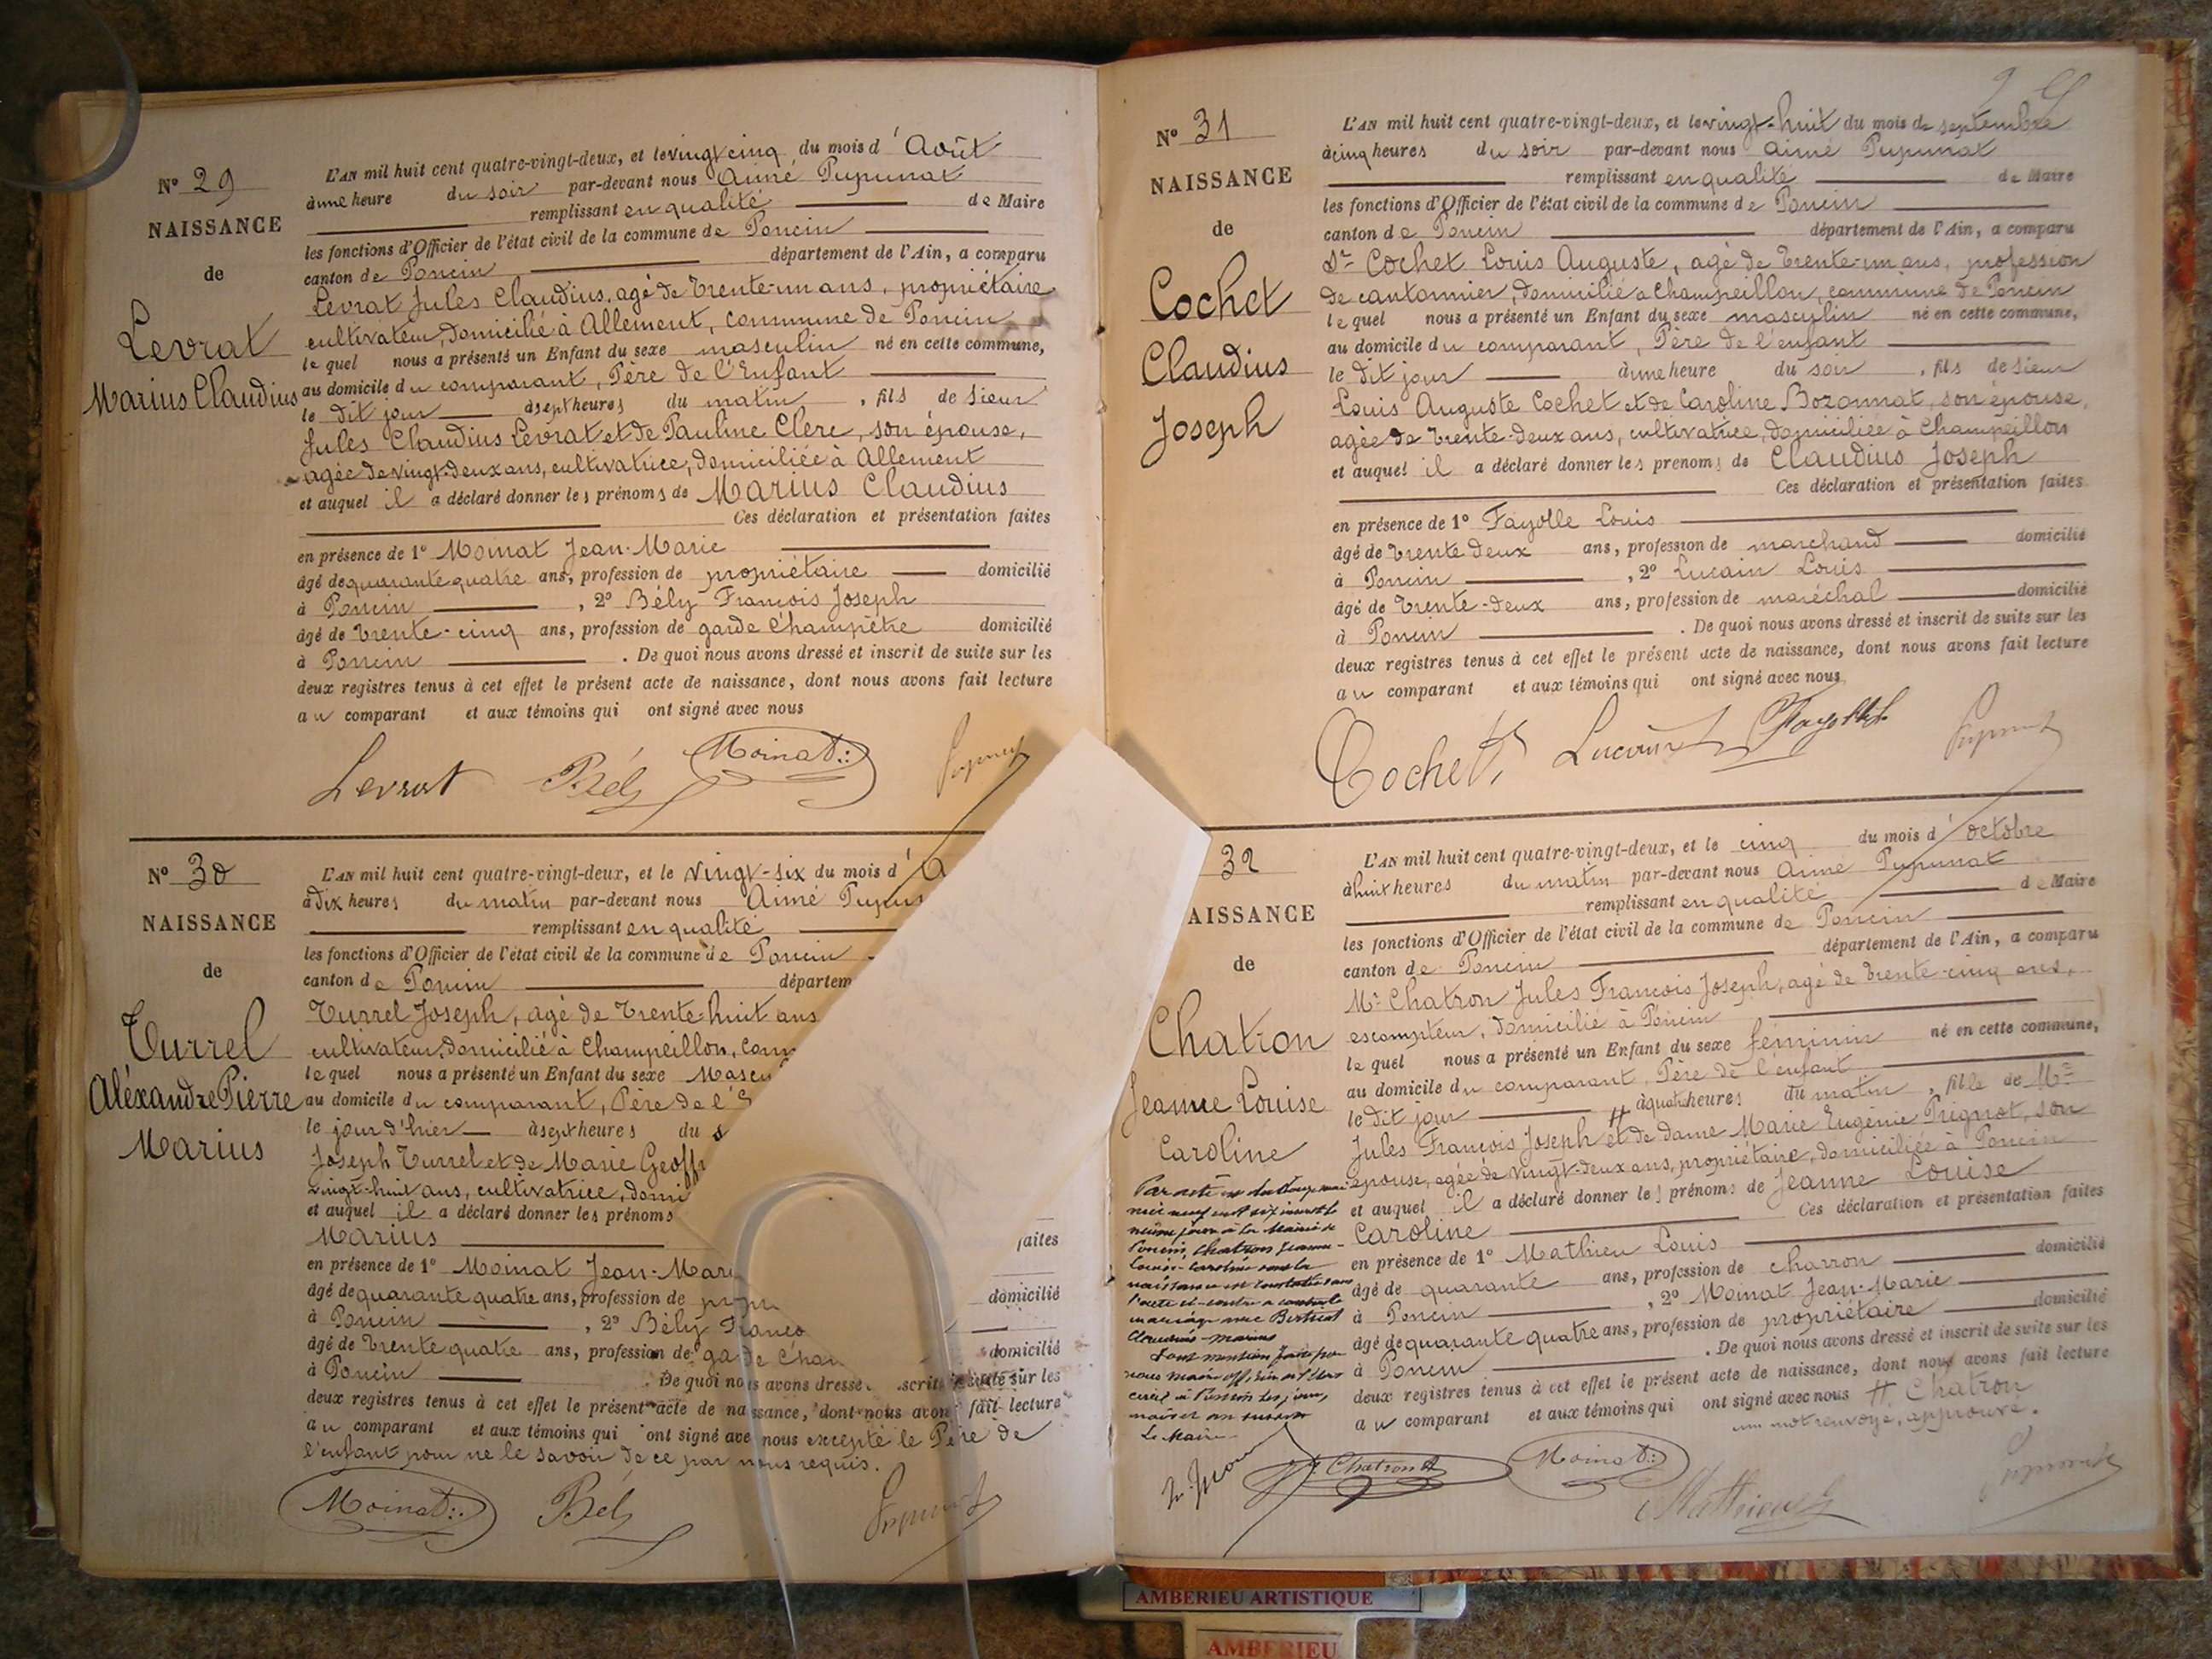 N° 29
NAISSANCE
de
Levrat
Marius Claudius
L'AN mil huit cent quatre-vingt-deux, et le vingt cinq du mois d'Août
à une heure du soir par-devant nous Aimé Pupunat
remplissant en qualité de Maire
les fonctions d'Officier de l'état civil de la commune de Poncin
canton de Poncin département de l'Ain, a comparu
Levrat Jules Claudius, agé de Trente-un ans, propriétaire
cultivateur, domicilié à Allement, commune de Poncin
le quel nous a présenté un Enfant du sexe masculin né en cette commune,
au domicile du comparant, Père de l'Enfant
le dit jour à sept heures du matin, fils de sieur
Jules Claudius Levrat et de Pauline Clerc, son épouse,
agée de vingt-deux ans, cultivatrice, domiciliée à Allement
et auquel il a déclaré donner les prénoms de Marius Claudius
Ces déclaration et présentation faites
en présence de 1° Moinat Jean-Marie
âgé de quarante quatre ans, profession de propriétaire domicilié
à Poncin, 2° Bély François Joseph
âgé de Trente-cinq ans, profession de garde champêtre domicilié
à Poncin. De quoi nous avons dressé et inscrit de suite sur les
deux registres tenus à cet effet le présent acte de naissance, dont nous avons fait lecture
au comparant et aux témoins qui ont signé avec nous
Levrat Bély Moinat Pupunat
N° 30
NAISSANCE
de
Turrel
Aléxandre Pierre
Marius
L'AN mil huit cent quatre-vingt-deux, et le vingt-six du mois d'A
à dix heures du matin par-devant nous Aimé Pupun
remplissant en qualité
les fonctions d'Officier de l'état civil de la commune de Poncin
canton de Poncin départem
Turrel Joseph, agé de Trente-huit ans
cultivateur, domicilié à Champeillon, com
le quel nous a présenté un Enfant du sexe Mascu
au domicile du comparant, Père de l'E
le jour d'hier à sept heures du s
Joseph Turrel et de Marie Geoff
vingt-huit ans, cultivatrice, domi
et auquel il a déclaré donner les prénoms
Marius faites
en présence de 1° Moinat Jean-Mari
âgé de quarante quatre ans, profession de prop domicilié
à Poncin, 2° Bély Franço
âgé de Trente quatre ans, profession de garde cham domicilié
à Poncin. De quoi nous avons dressé scrit de suite sur les
deux registres tenus à cet effet le présent acte de naissance, dont nous avons fait lecture
au comparant et aux témoins qui ont signé avec nous excepté le Père de
l'enfant pour ne le savoir de ce par nous requis.
Moinat Bély Pupunat
N° 31
NAISSANCE
de
Cochet
Claudius
Joseph
L'AN mil huit cent quatre-vingt-deux, et le vingt-huit du mois de septembre
à cinq heures du soir par-devant nous Aimé Pupunat
remplissant en qualité de Maire
les fonctions d'Officier de l'état civil de la commune de Poncin
canton de Poncin département de l'Ain, a comparu
Sr Cochet Louis Auguste, agé de Trente-un ans, profession
de cantonnier, domicilié à Champeillon, commune de Poncin
le quel nous a présenté un Enfant du sexe masculin né en cette commune,
au domicile du comparant, Père de l'enfant
le dit jour à une heure du soir, fils de sieur
Louis Auguste Cochet et de Caroline Bozonnat, son épouse,
agée de Trente-deux ans, cultivatrice, domiciliée à Champeillon
et auquel il a déclaré donner les prénoms de Claudius Joseph
Ces déclaration et présentation faites
en présence de 1° Fayolle Louis
âgé de Trente deux ans, profession de marchand domicilié
à Poncin, 2° Lucain Louis
âgé de Trente-deux ans, profession de maréchal domicilié
à Poncin. De quoi nous avons dressé et inscrit de suite sur les
deux registres tenus à cet effet le présent acte de naissance, dont nous avons fait lecture
au comparant et aux témoins qui ont signé avec nous
Cochet Lucain Fayolle Pupunat
32
AISSANCE
de
Chatron
Jeanne Louise
Caroline
L'AN mil huit cent quatre-vingt-deux, et le cinq du mois d'octobre
à huit heures du matin par-devant nous Aimé Pupunat
remplissant en qualité de Maire
les fonctions d'Officier de l'état civil de la commune de Poncin
canton de Poncin département de l'Ain, a comparu
Mr Chatron Jules François Joseph, agé de Trente-cinq ans,
escompteur, domicilié à Poncin
le quel nous a présenté un Enfant du sexe féminin né en cette commune,
au domicile du comparant, Père de l'enfant
le dit jour à quatre heures du matin, fille de Mr
Jules François Joseph # et de dame Marie Eugénie Prégnot, son
épouse, agée de vingt-deux ans, propriétaire, domiciliée à Poncin
et auquel il a déclaré donner les prénoms de Jeanne Louise
Caroline Ces déclaration et présentation faites
en présence de 1° Mathieu Louis
âgé de quarante ans, profession de charron domicilié
à Poncin, 2° Moinat Jean-Marie
âgé de quarante quatre ans, profession de propriétaire domicilié
à Poncin. De quoi nous avons dressé et inscrit de suite sur les
deux registres tenus à cet effet le présent acte de naissance, dont nous avons fait lecture
au comparant et aux témoins qui ont signé avec nous # Chatron
un mot renvoyé, approuvé.
Par acte en date
mil neuf cent six inscrit le
même jour à la Mairie de
Poncin, Chatron Jeanne-
Louise-Caroline dont la
naissance est constatée dans
l'acte ci-contre a contracté
mariage avec
Claudius-Marius
Dont mention faite par
nous Maire officier de l'état
civil à Poncin les jour,
mois et an susdits
Le Maire
Chatron Moinat Mathieu Pupunat
AMBERIEU ARTISTIQUE
AMBERIEU